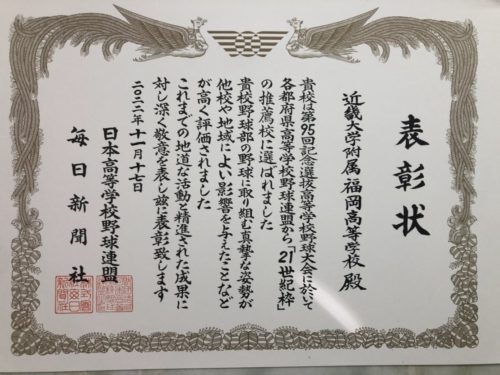 表彰状
近畿大学附属福岡高等学校 殿
貴校は第95回記念選抜高等学校野球大会に於いて
各都府県高等学校野球連盟から「21世紀枠」
の推薦校に選ばれました
貴校野球部の野球に取り組む真摯な姿勢が
他校や地域によい影響を与えたことなど
が高く評価されました
これまでの地道な活動と精進された成果に
対し深く敬意を表し玆に表彰致します
二〇二二年十一月十七日
日本高等学校野球連盟
毎日新聞社